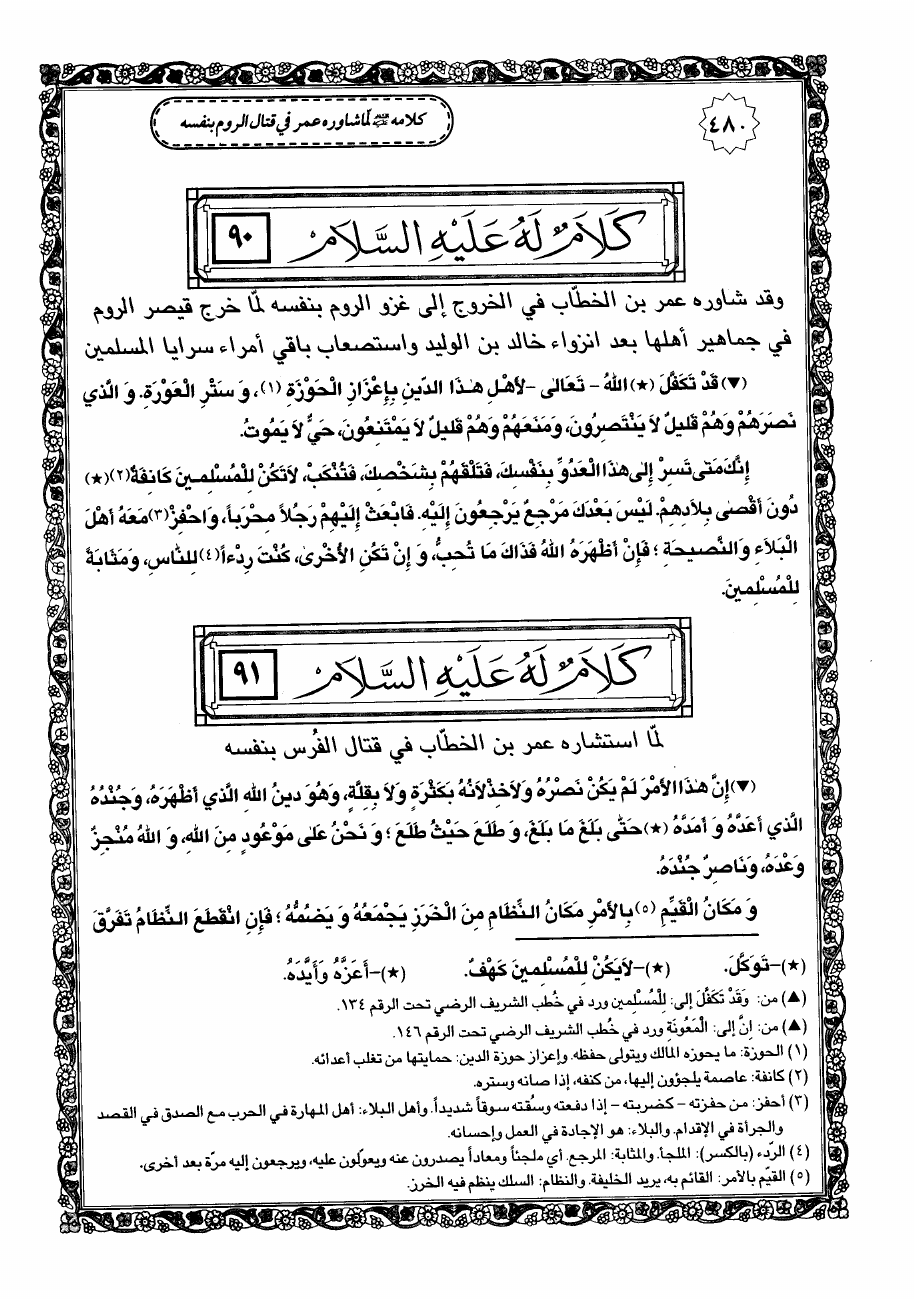 ٤٨٠
كلامه عليه السلام لمّا شاوره عمر في قتال الروم بنفسه
كَلَامٌ لَهُ عَلَيْهِ السَّلَامُ
٩٠
وقد شاوره عمر بن الخطّاب في الخروج إلى غزو الروم بنفسه لمّا خرج قيصر الروم
في جماهير أهلها بعد انزواء خالد بن الوليد واستصعاب باقي أمراء سرايا المسلمين
(▼) قَدْ تَكَفَّلَ (★) اللهُ - تَعَالى - لأَهْلِ هٰذَا الدّينِ بِإِعْزَازِ الْحَوْزَةِ (١)، وَ سَتْرِ الْعَوْرَةِ. وَ الَّذي
نَصَرَهُمْ وَهُمْ قَليلٌ لاَ يَنْتَصِرُونَ، وَمَنَعَهُمْ وَهُمْ قَليلٌ لاَ يَمْتَنِعُونَ، حَيٌّ لاَ يَمُوتُ.
إِنَّكَ مَتى تَسِرْ إِلى هٰذَا الْعَدُوِّ بِنَفْسِكَ، فَتَلْقَهُمْ بِشَخْصِكَ، فَتُنْكَبْ، لاَتَكُنْ لِلْمُسْلِمينَ كَانِفَةٌ (٢)(★)
دُونَ أَقْصى بِلاَدِهِمْ. لَيْسَ بَعْدَكَ مَرْجِعٌ يَرْجِعُونَ إِلَيْهِ. فَابْعَثْ إِلَيْهِمْ رَجُلاً مِحْرَباً، وَاحْفِزْ (٣) مَعَهُ أَهْلَ
الْبَلاَءِ وَالنَّصيحَةِ ؛ فَإِنْ أَظْهَرَهُ اللهُ فَذَاكَ مَا تُحِبُّ، وَ إِنْ تَكُنِ الأُخْرى، كُنْتَ رِدْءاً (٤) لِلنَّاسِ، وَمَثَابَةً
لِلْمُسْلِمينَ.
كَلَامٌ لَهُ عَلَيْهِ السَّلَامُ
٩١
لمّا استشاره عمر بن الخطّاب في قتال الفُرس بنفسه
(▼) إِنَّ هٰذَا الأَمْرَ لَمْ يَكُنْ نَصْرُهُ وَلاَخِذْلاَنُهُ بِكَثْرَةٍ وَلاَ بِقِلَّةٍ، وَهُوَ دينُ اللهِ الَّذي أَظْهَرَهُ، وَجُنْدُهُ
الَّذي أَعَدَّهُ وَ أَمَدَّهُ (★) حَتّى بَلَغَ مَا بَلَغَ، وَ طَلَعَ حَيْثُ طَلَعَ ؛ وَ نَحْنُ عَلى مَوْعُودٍ مِنَ اللهِ، وَ اللهُ مُنْجِزٌ
وَعْدَهُ، وَنَاصِرٌ جُنْدَهُ.
وَ مَكَانُ الْقَيِّمِ (٥) بِالأَمْرِ مَكَانُ النِّظَامِ مِنَ الْخَرَزِ يَجْمَعُهُ وَ يَضُمُّهُ ؛ فَإِنِ انْقَطَعَ النِّظَامُ تَفَرَّقَ
(★)-تَوَكَّلَ. (★)-لاَيَكُنْ لِلْمُسْلِمينَ كَهْفٌ. (★)-أَعَزَّهُ وَأَيَّدَهُ.
(▲) من: وَقَدْ تَكَفَّلَ إلى: لِلْمُسْلِمين ورد في خُطب الشريف الرضي تحت الرقم ١٣٤.
(▲) من: إِنَّ إلى: الْمَعُونَةِ ورد في خُطب الشريف الرضي تحت الرقم ١٤٦.
(١) الحوزة: ما يحوزه المالك ويتولى حفظه. وإعزاز حوزة الدين: حمايتها من تغلب أعدائه.
(٢) كانفة: عاصمة يلجؤون إليها، من كنفه، إذا صانه وستره.
(٣) أحفز: من حفزته - كضربته - إذا دفعته وسُقته سوقاً شديداً. وأهل البلاء: أهل المهارة في الحرب مع الصدق في القصد
والجرأة في الإقدام. والبلاء: هو الإجادة في العمل وإحسانه.
(٤) الرّدء (بالكسر): الملجأ. والمثابة: المرجع. أي ملجئاً ومعاداً يصدرون عنه ويعوّلون عليه، ويرجعون إليه مرّة بعد أخرى.
(٥) القيّم بالأمر: القائم به، يريد الخليفة. والنظام: السلك ينظم فيه الخرز.